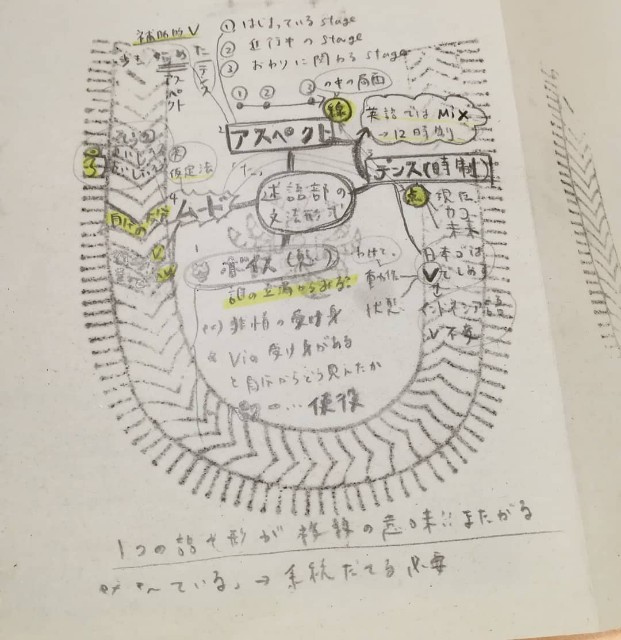 補助的V
① はじまっている stage
② 進行中の stage
③ おわりに関わる stage
歩き始めた
アスペクト
テンス
① ② ③ の中の局面
線
英語では Mix
→12時制
アスペクト
テンス(時制)
仮定法
「た」
ムード
述語部の
文法形式
点
現在
カコ
未来
ボイス(態)
誰の立場からみる?
動作
状態
日本ごは
Vでしめす
インドネシア語
V不変
ex) 非情の受け身
& Viの受け身がある
と自分からどう見たか
使役
1つの語や形が複数の意味にまたがる
ex「〜ている」→ 系統だてる必要